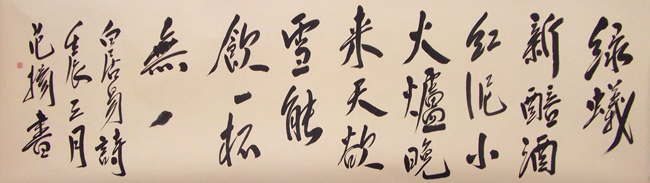 绿蟻
新醅酒
红泥小
火爐晚
来天欲
雪能
飲一杯
無
白居易詩
壬辰三月
范書